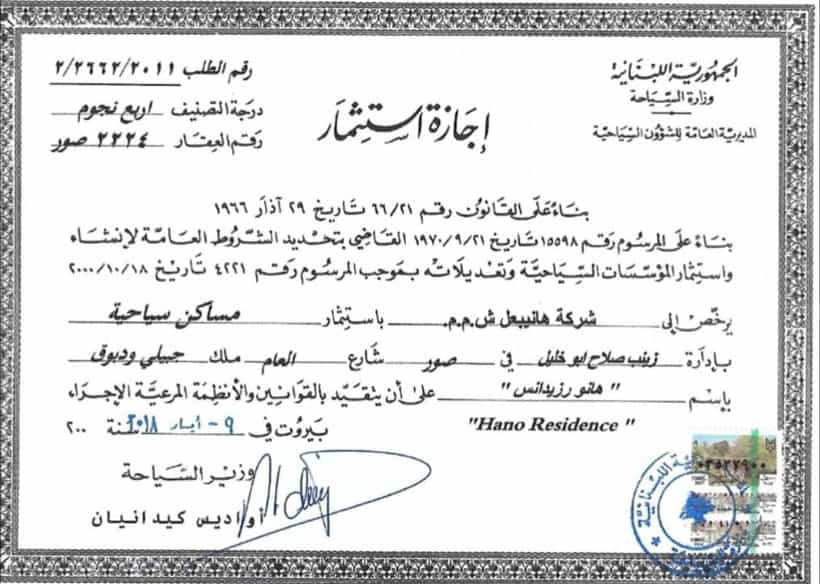 الجمهورية اللبنانية
وزارة السياحة
المديرية العامة للشؤون السياحية
رقم الطلب ٢/٢٦٦٢/٢٠١١
درجة التصنيف اربع نجوم
رقم العقار ٢٢٢٤ صور
إجازة استثمار
بناءً على القانون رقم ٦٦/٢١ تاريخ ٢٩ آذار ١٩٦٦
بناءً على المرسوم رقم ١٥٥٩٨ تاريخ ١٩٧٠/٩/٢١ القاضي بتحديد الشروط العامة لإنشاء
واستثمار المؤسسات السياحية وتعديلاته بموجب المرسوم رقم ٤٢٢١ تاريخ ٢٠٠٠/١٠/١٨
يرخّص إلى شركة هانيبعل ش.م.م. باستثمار مساكن سياحية
بإدارة زينب صلاح ابو خليل في صور شارع العام ملك جبيلي ودبوق
بإسم "هانو رزيدانس" على أن يتقيد بالقوانين والأنظمة المرعية الإجراء
"Hano Residence"
بيروت في ٩ - أيار ٢٠١٨ سنة ٢٠٠
وزير السياحة
اواديس كيدانيان